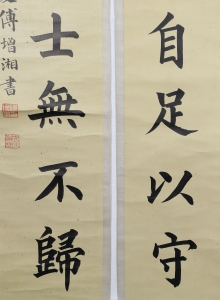 自足以守
士無不歸
傅增湘書